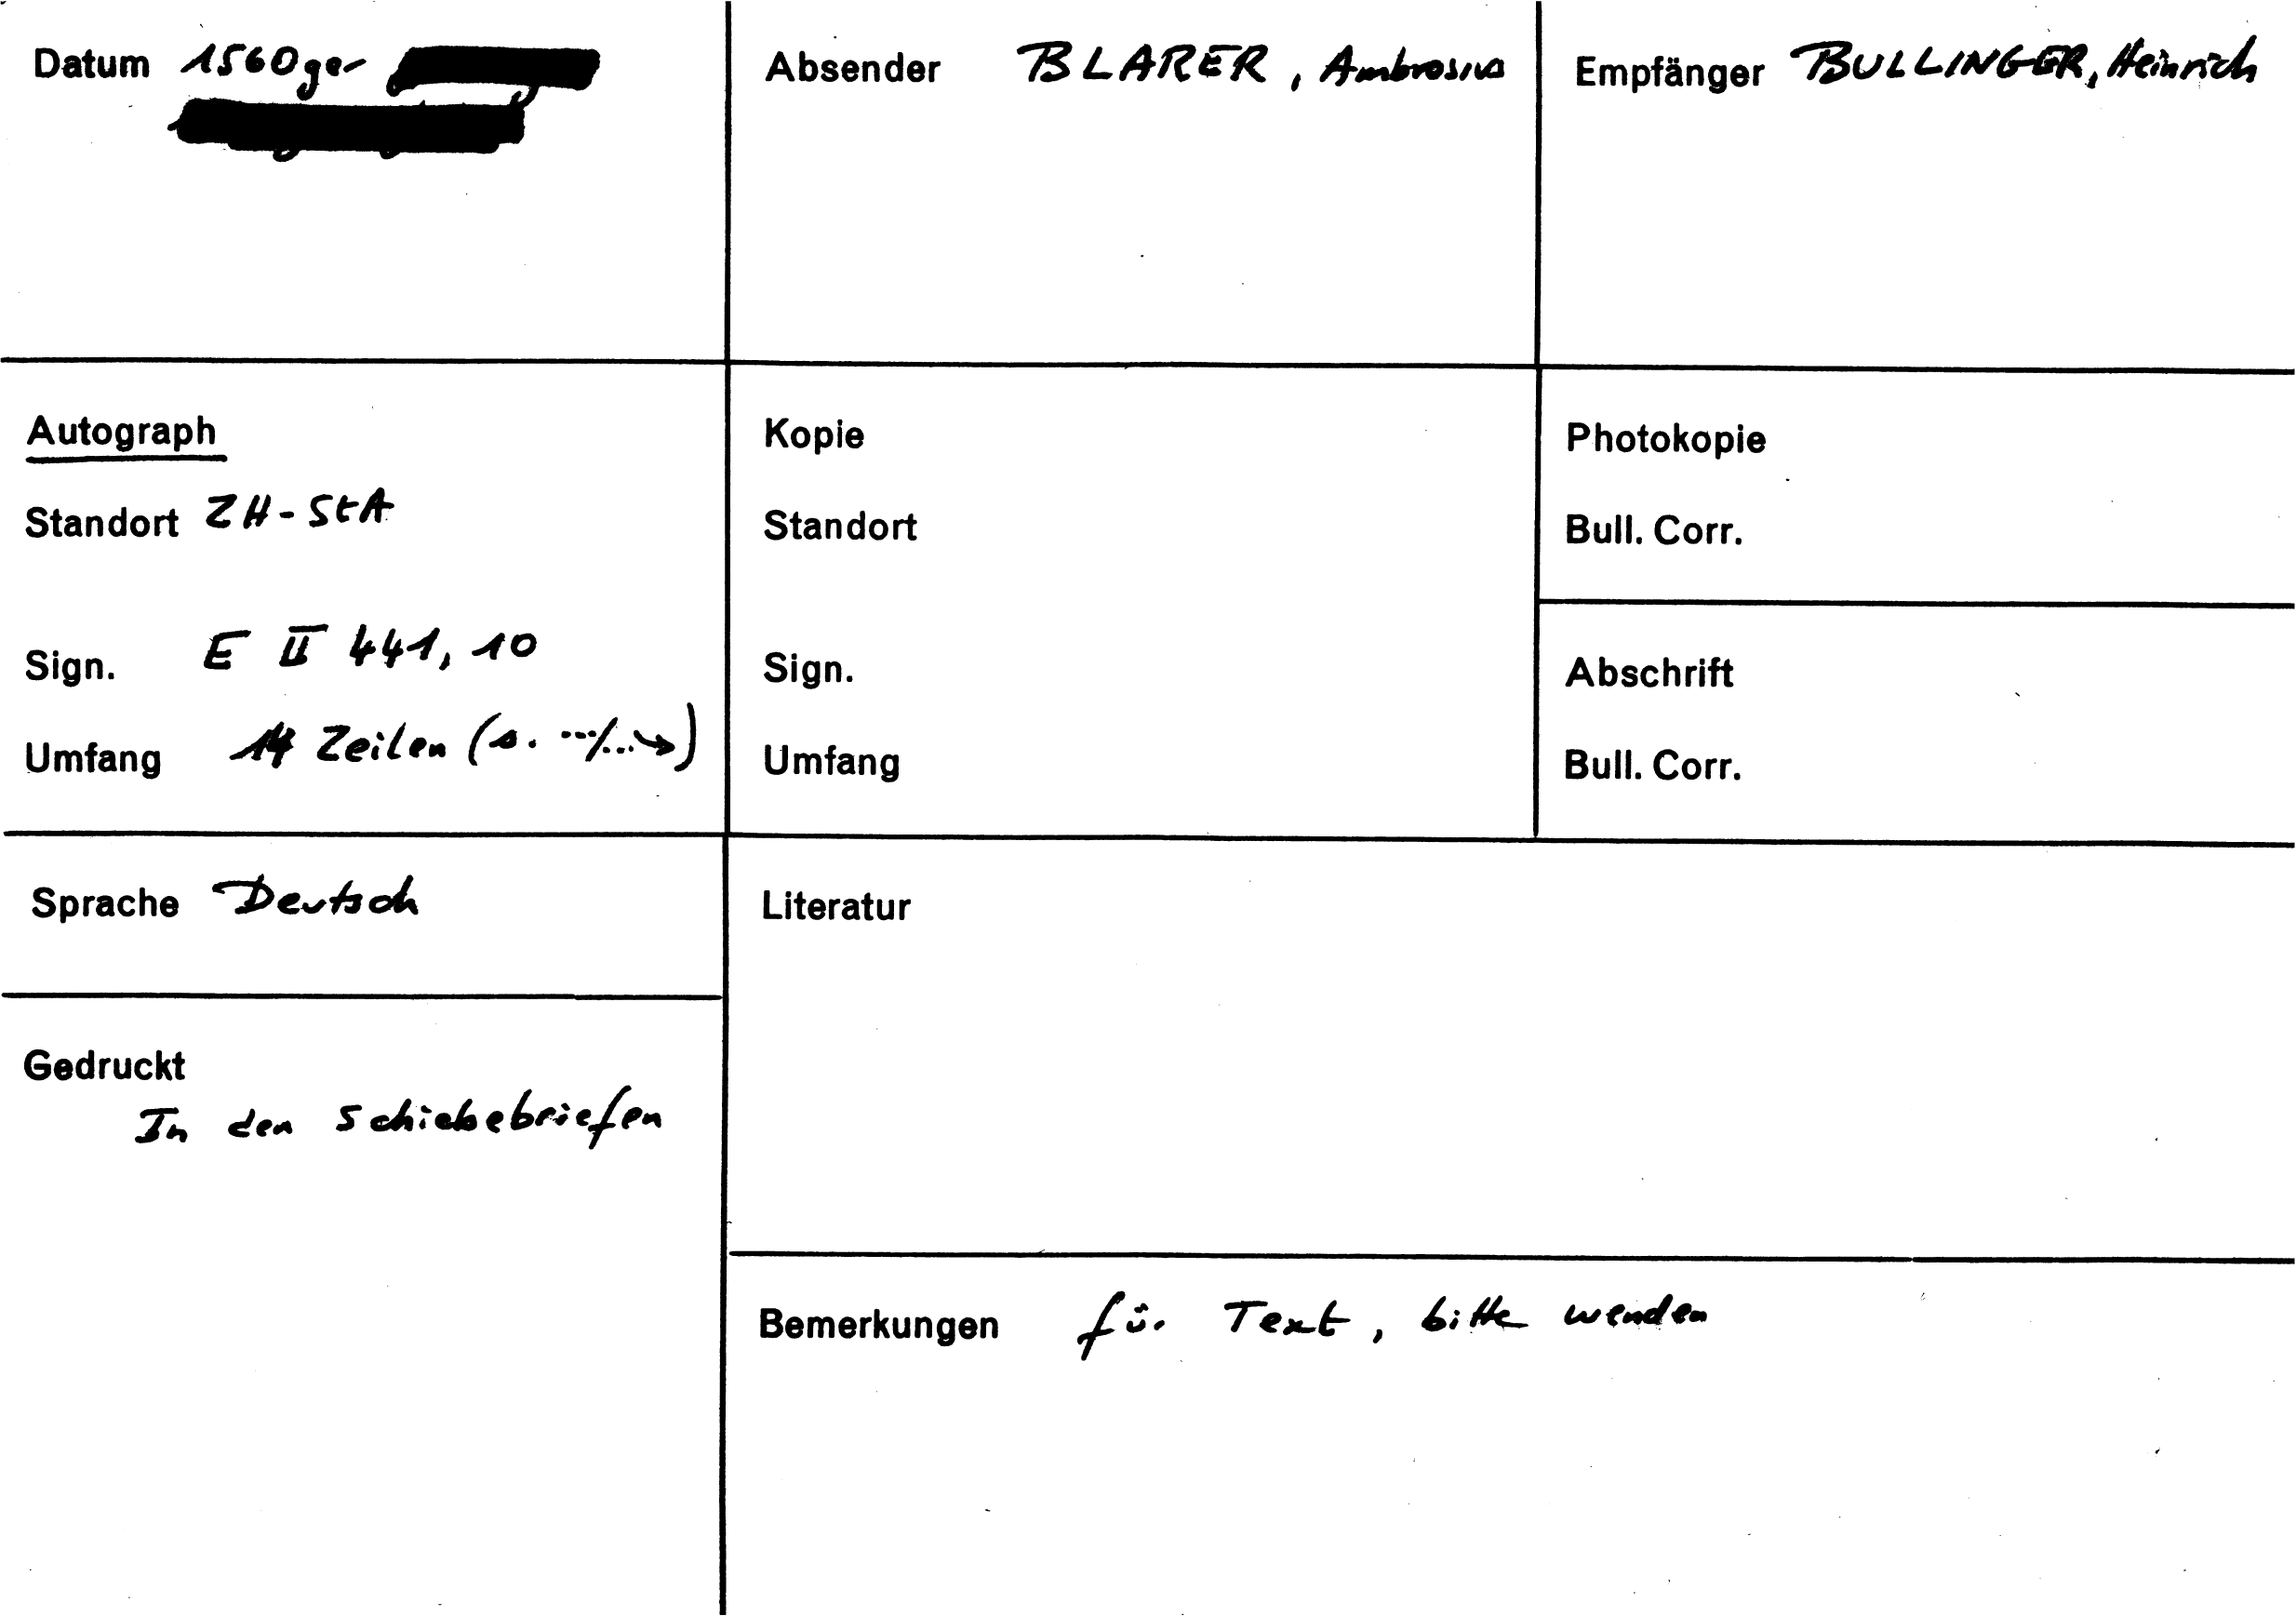 Datum 1560ger
Absender BLARER, Ambrosius
Empfänger BULLINGER, Heinrich
Autograph
Standort ZH-StA
Sign. E II 441, 10
Umfang 14 Zeilen (s. ···/...→)
Kopie
Standort
Sign.
Umfang
Photokopie
Bull. Corr.
Abschrift
Bull. Corr.
Sprache Deutsch
Literatur
Gedruckt
In den Schiebebriefen
Bemerkungen für Text, bitte wenden